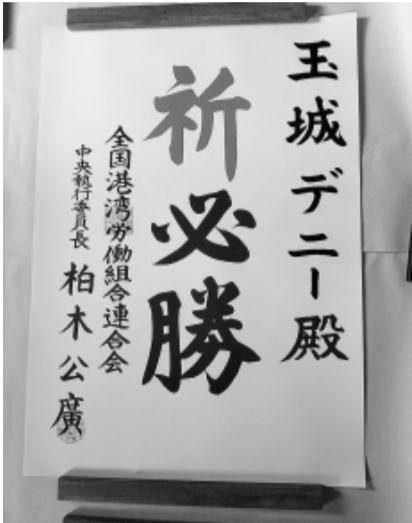 玉城デニー殿
祈必勝
全国港湾労働組合連合会
中央執行委員長 柏木公廣